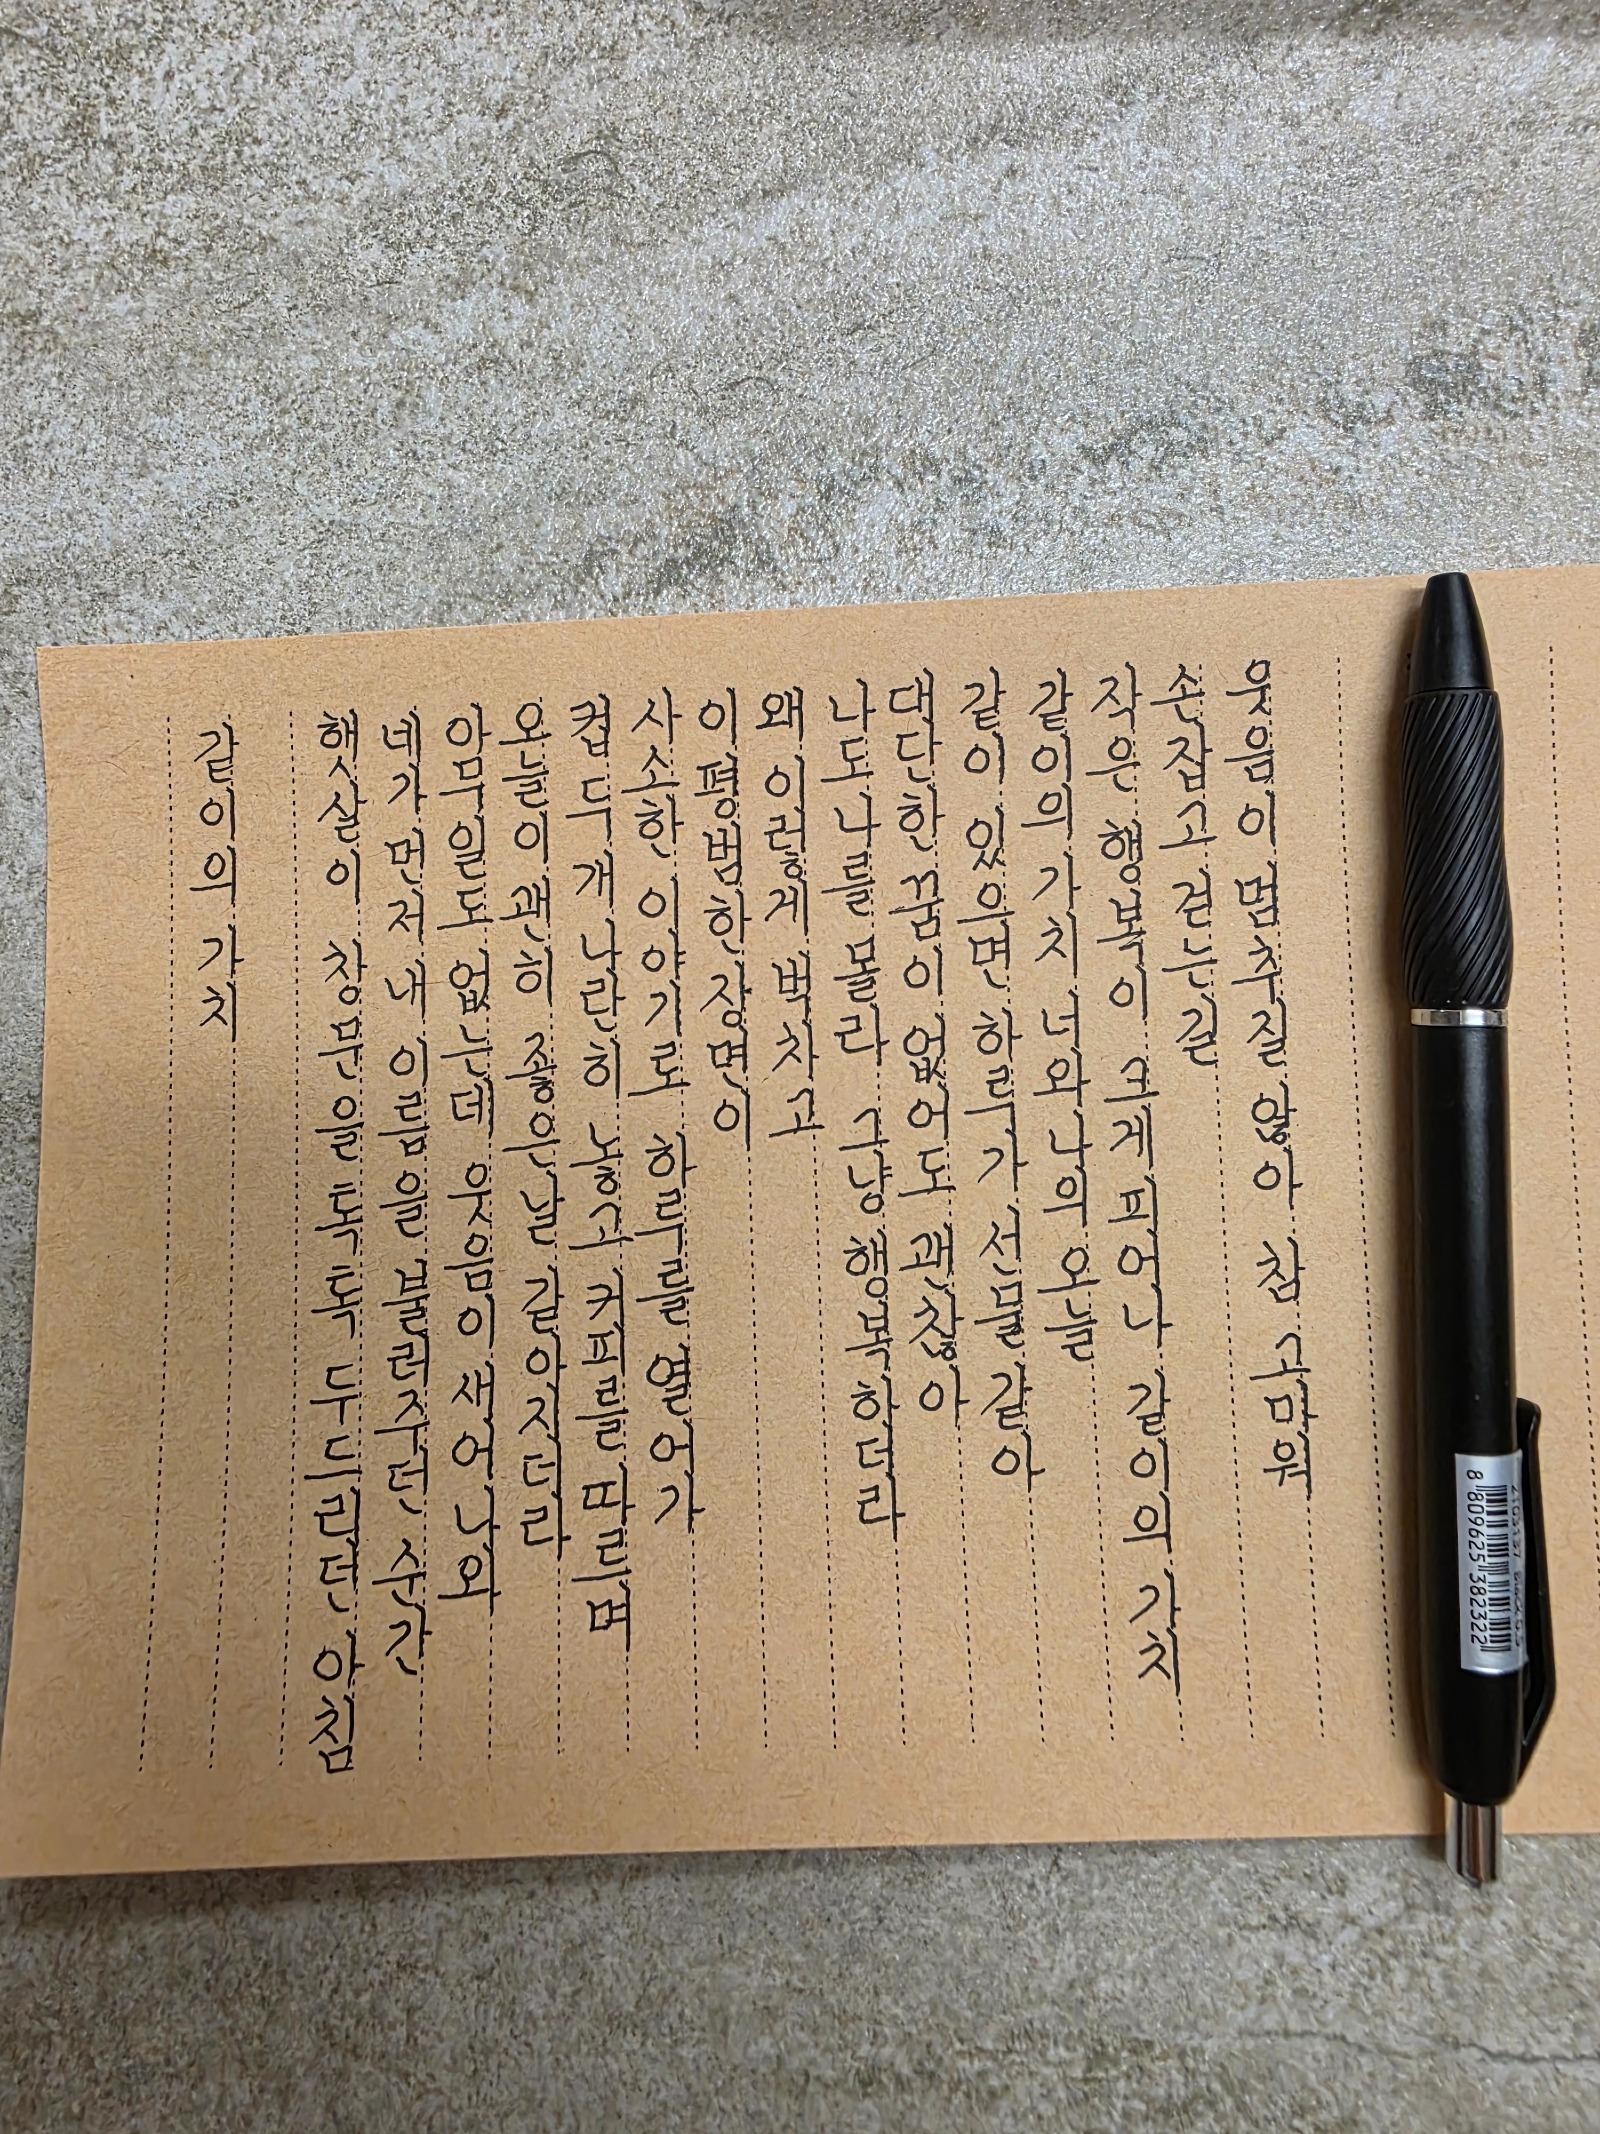 같이의 가치
햇살이 창문을 톡톡 두드리던 아침
네가 먼저 내 이름을 불러주던 순간
아무일도 없는데 웃음이 새어 나와
오늘이 괜히 좋은날 같아지더라
컵 두개 나란히 놓고 커피를 따르며
사소한 이야기로 하루를 열어가
이 평범한 장면이
왜 이렇게 벅차고
나도 나를 몰라 그냥 행복하더라
대단한 꿈이 없어도 괜찮아
같이 있으면 하루가 선물 같아
같이의 가치 너와 나의 오늘
작은 행복이 크게 피어나 같이의 가치
손잡고 걷는길
웃음이 멈추질 않아 참 고마워
8 809625 382322